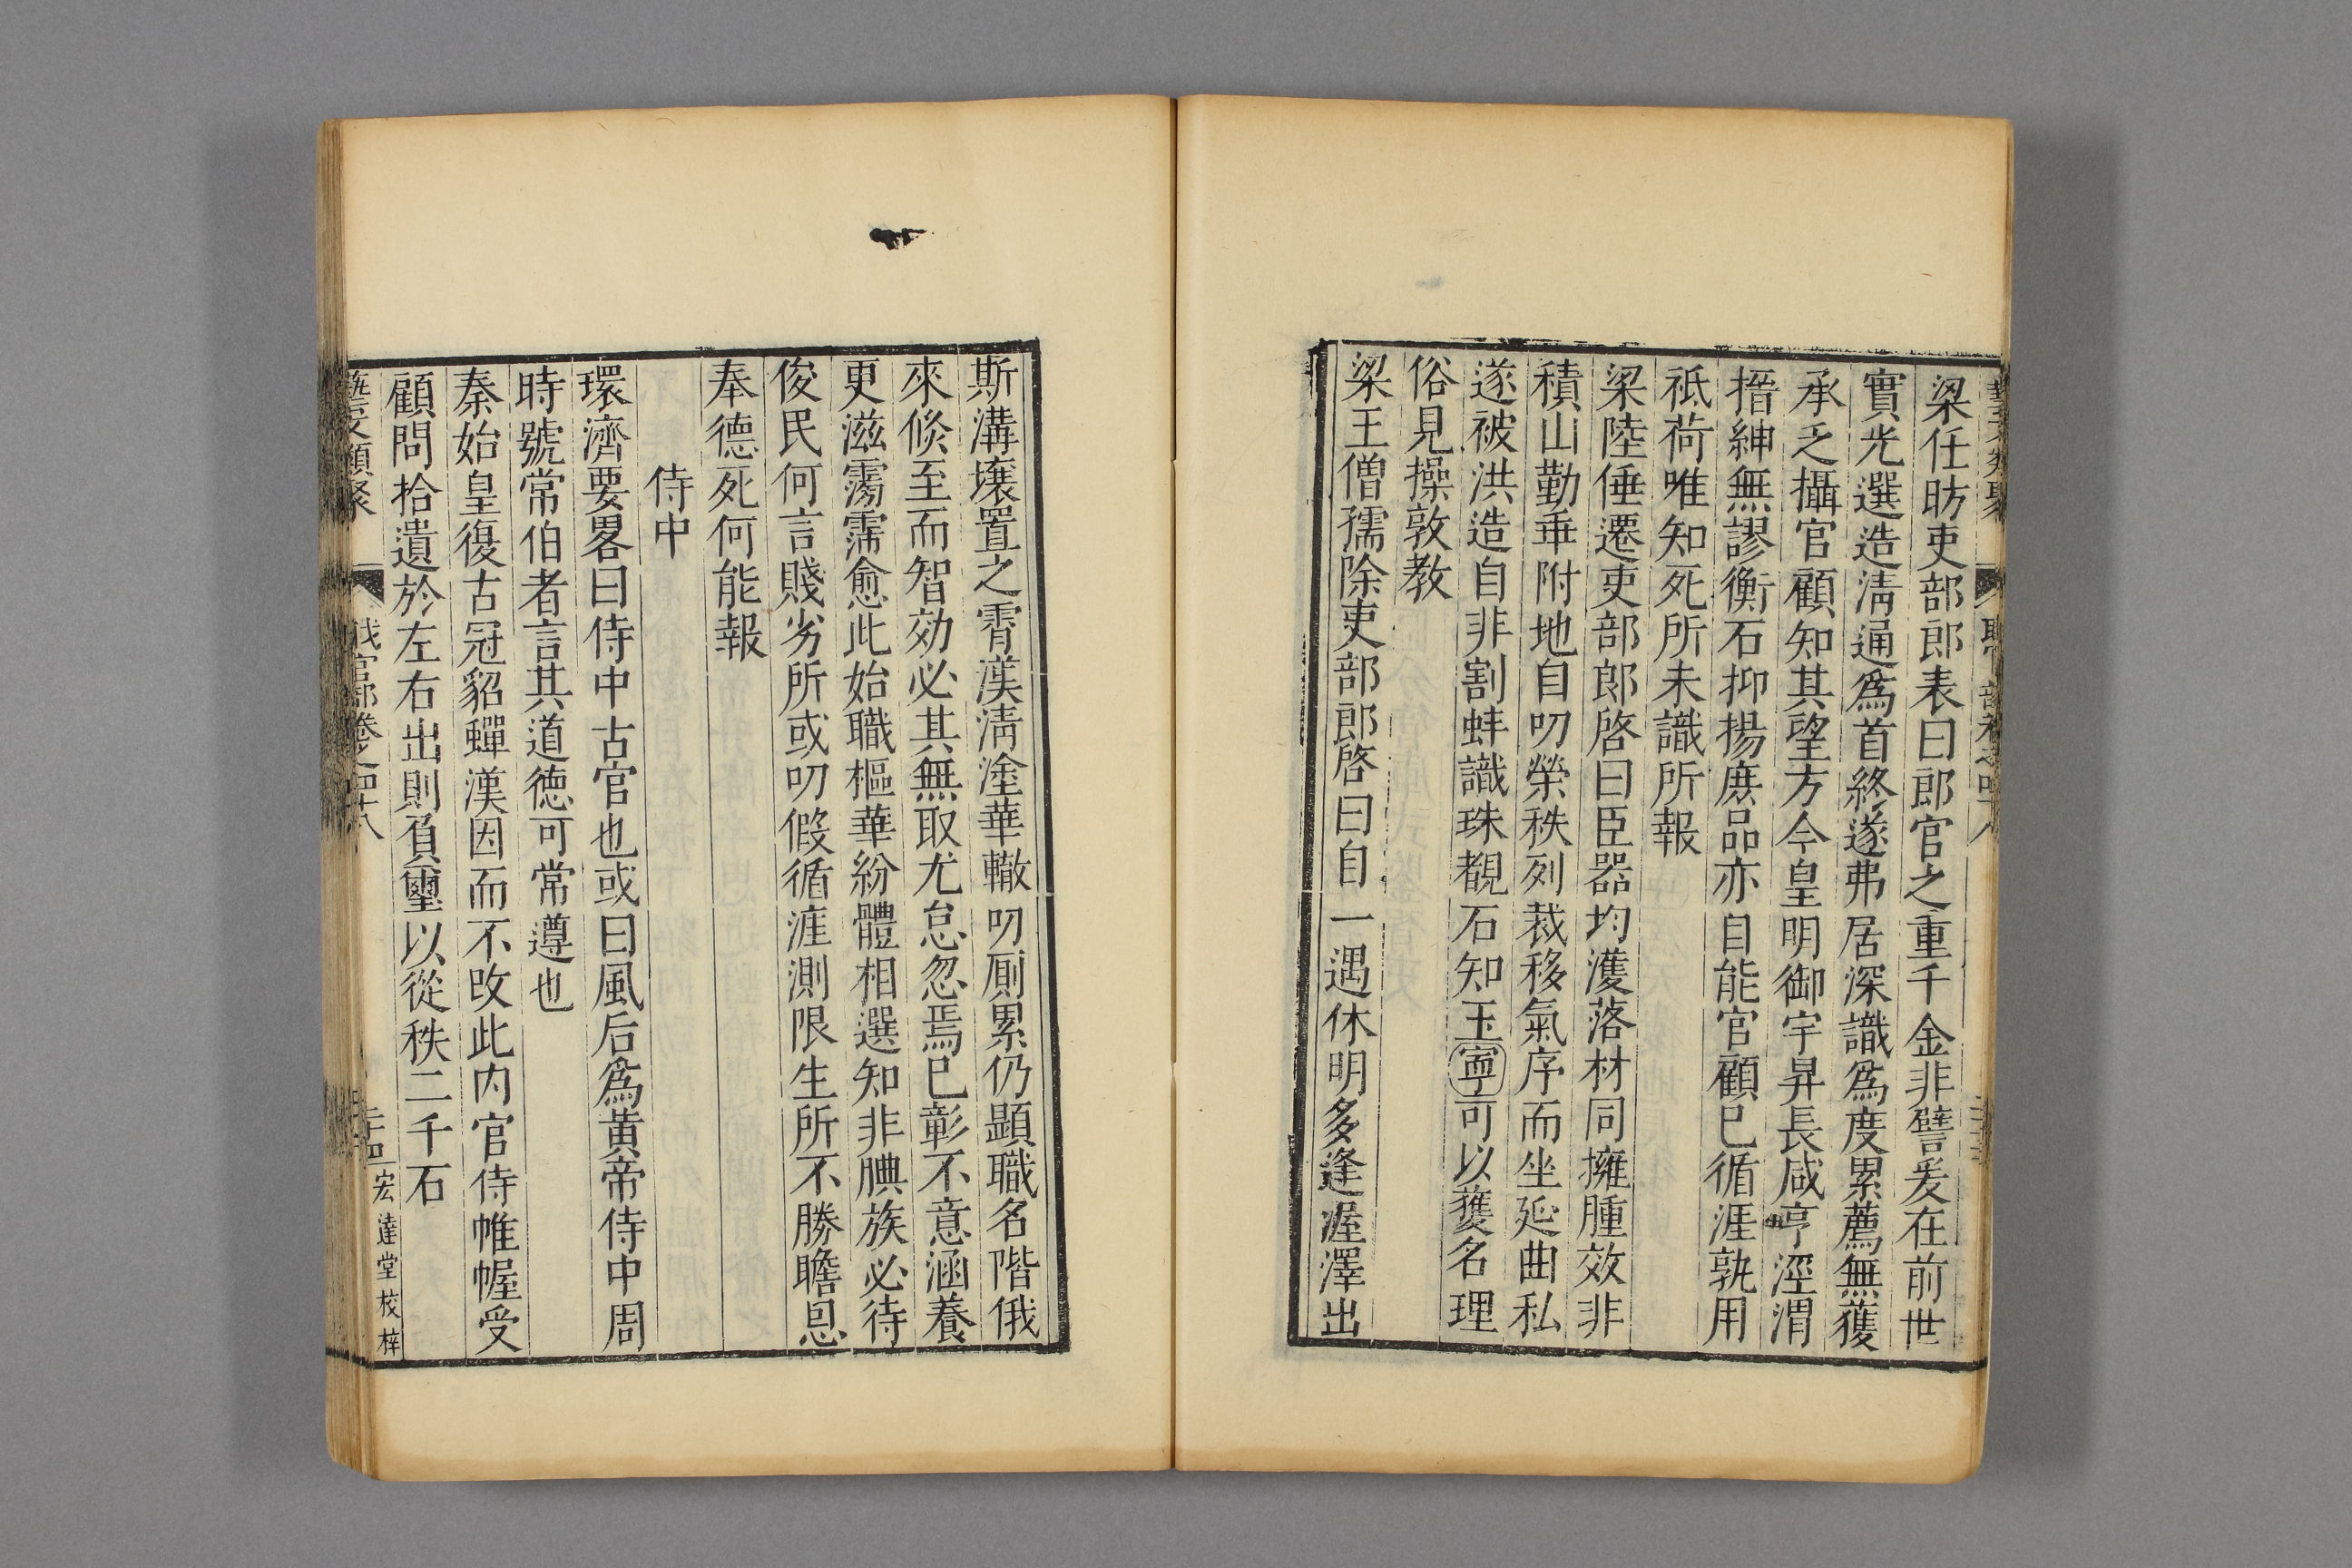 梁任昉吏部郎表曰郎官之重千金非譬爰在前世
實光選造清通爲首終遂弗居深識爲度累薦無獲
承乏攝官顧知其望方今皇明御宇昇長咸亨涇渭
搢紳無謬衡石抑揚庶品亦自能官顧已循涯孰用
祗荷唯知死所未識所報
梁陸倕遷吏部郎啓曰臣器均濩落材同擁腫效非
積山勤乖附地自叨榮秩列裁移氣序而坐延曲私
遂被洪造自非割蚌識珠覩石知玉寧可以蔓名理
俗見操敦教
梁王僧孺除吏部郎啓曰自一遇休明多逢渥澤出
斯溝壤置之霄漢淸塗華轍叨厠累仍顯職名階俄
來倐至而智効必其無取尤怠忽焉已彰不意涵養
更滋霶霈愈此始職樞華紛體相選知非腆族必待
俊民何言賤劣所或叨假循涯測限生所不勝瞻恩
奉德死何能報
侍中
環濟要畧曰侍中古官也或曰風后爲黃帝侍中周
時號常伯者言其道德可常遵也
秦始皇復古冠貂蟬漢因而不改此内官侍帷幄受
顧問拾遺於左右出則負璽以從秩二千石
藝文類聚
職官部卷之四十八
二十四
宏達堂校梓